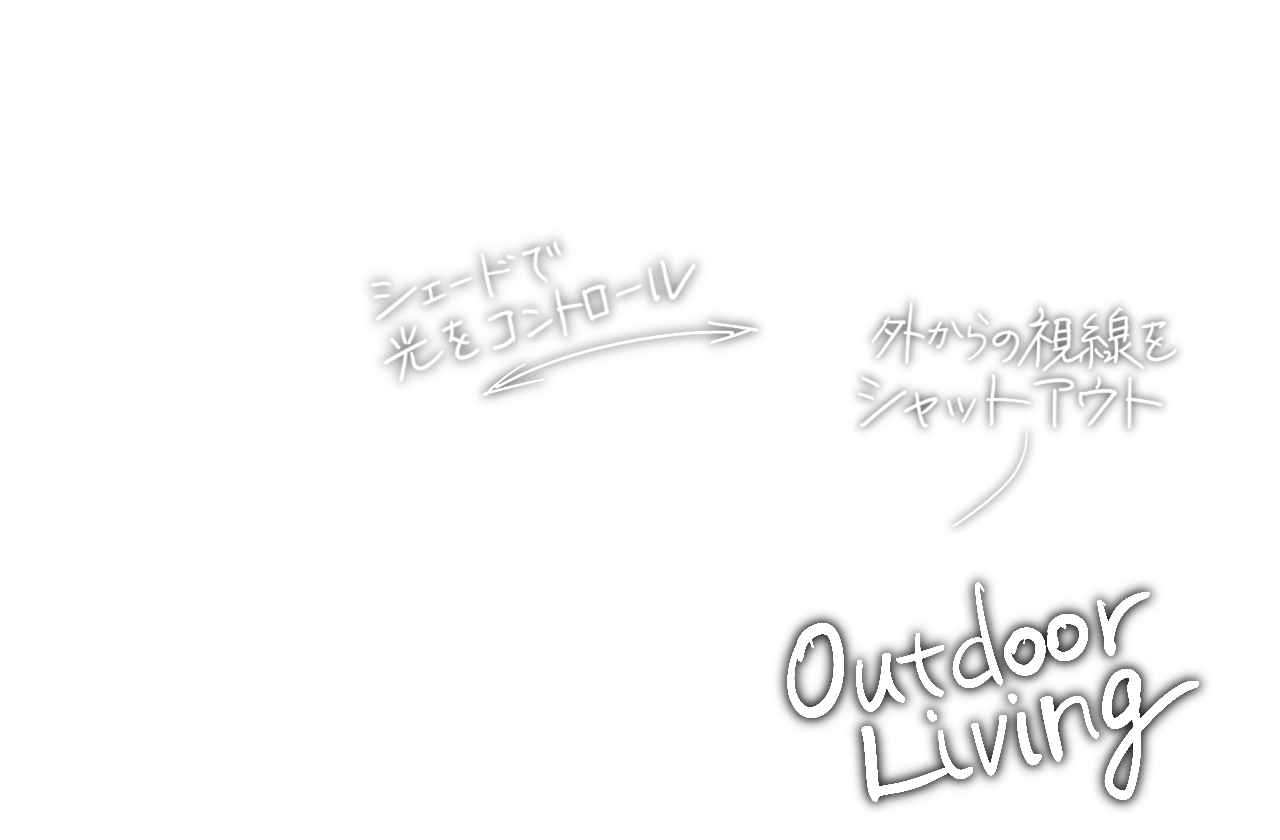 シェードで
光をコントロール
外からの視線を
シャットアウト
Outdoor
Living